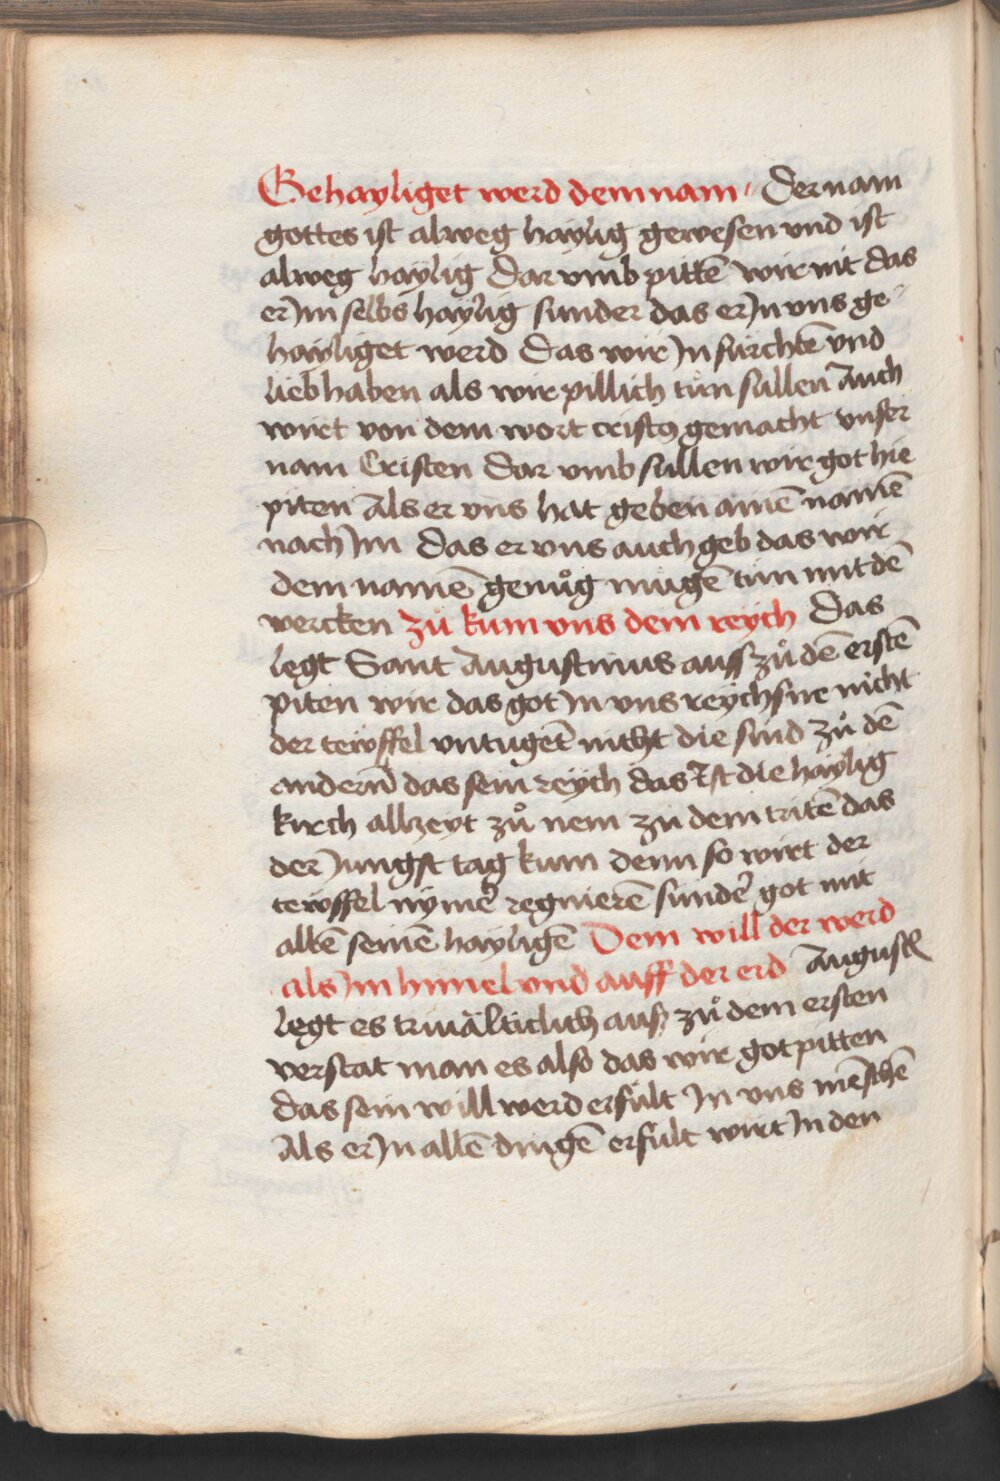 Gehayliget werd dein nam · Der nam
gottes ist alweg haylig gewesen vnd ist
alweg haylig Dar vmb pittē wir nit das
er Jm selbs haylig sunder das er Jn vns ge
hayliget werd Das wir Jn fürchtē vnd
lieb haben als wir pillich tün süllen Auch
wirt von dem wort cristꝯ gemacht vnser
nam Cristen Dar vmb süllen wir got hie
piten Als er vns hat geben ainē namē
nach Jm Das er vns auch geb das wir
dem namē genůg mügē tün mit dē
wercken zů kum vns dein reych Das
legt Sant Augustinus auss zů dē erstē
piten wir das got Jn vns reychsne nicht
der tewffel vntugēt nicht die sünd zů dē
andern̄ das sein reych das ist die haylig
kirch allzeyt zů nem zu dem tritē das
der Jungst tag kum denn so wirt der
tewffel nymer regnierē sunder got mit
allē seinē hayligē Dein will der werd
als Jm himel vnd auff der erd August
legt es triuälticlich aus zů dem ersten
verstat man es also das wir got pitten
das sein will werd erfült Jn vns mēschē
Als er Jn allē dingē erfült wirt Jn den